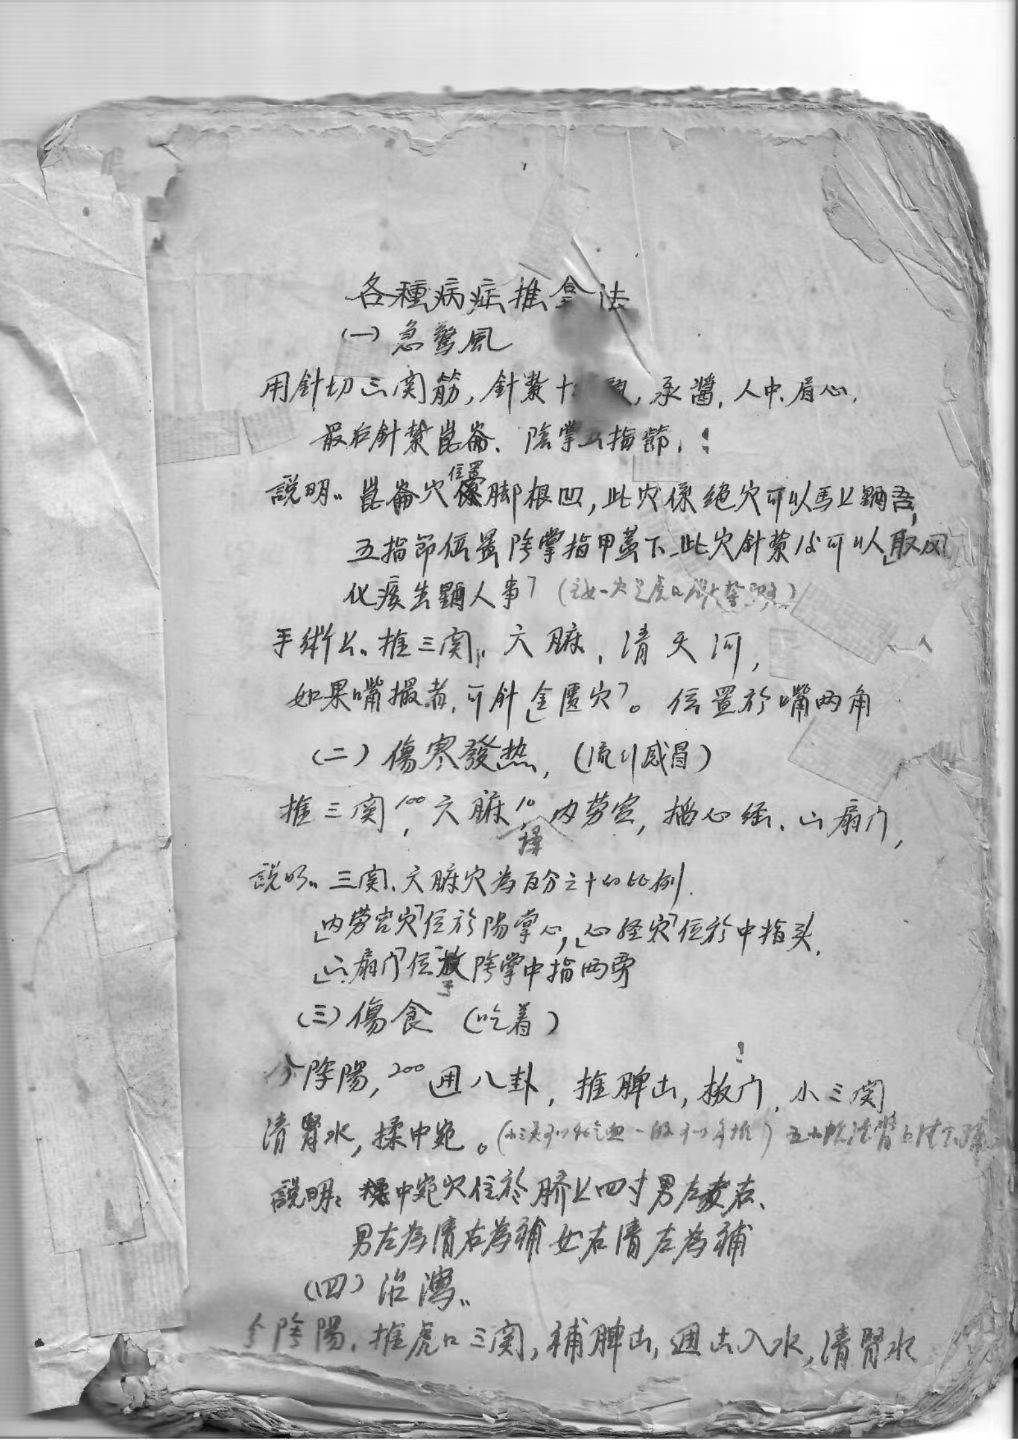 各種病症推拿法
(一)急驚風
用針切三関筋,針紮十,承醬,人中,眉心,
最后針紮崑崙、陰掌五指節,
說明:崑崙穴位置係脚根凹,此穴係絕穴可以馬上
五指節位置陰掌指甲蓋下,此穴針紮以可以取风
化痰生人事
手術上:推三関,六腑,清天河,
如果嘴撮者,可針「金匱穴」。位置於嘴两角
(二)傷寒發热,(流行感冒)
推三関100,六腑10,內劳宮,搯心経、六扇门,
說明:三関、六腑穴為百分之十的比例.
「內劳宮穴」位於陽掌心,「心経穴」位於中指头.
「六扇门」位於陰掌中指两旁
(三)傷食(吃着)
分陰陽,200 運八卦,推脾土,板门,小三関
清腎水,揉中宛。
說明:揉中宛穴位於脐上四寸男左女右、
男左為清右為補 女右清左為補
(四)治瀉:
分陰陽,推虎口三関,補脾土,運土入水,清腎水